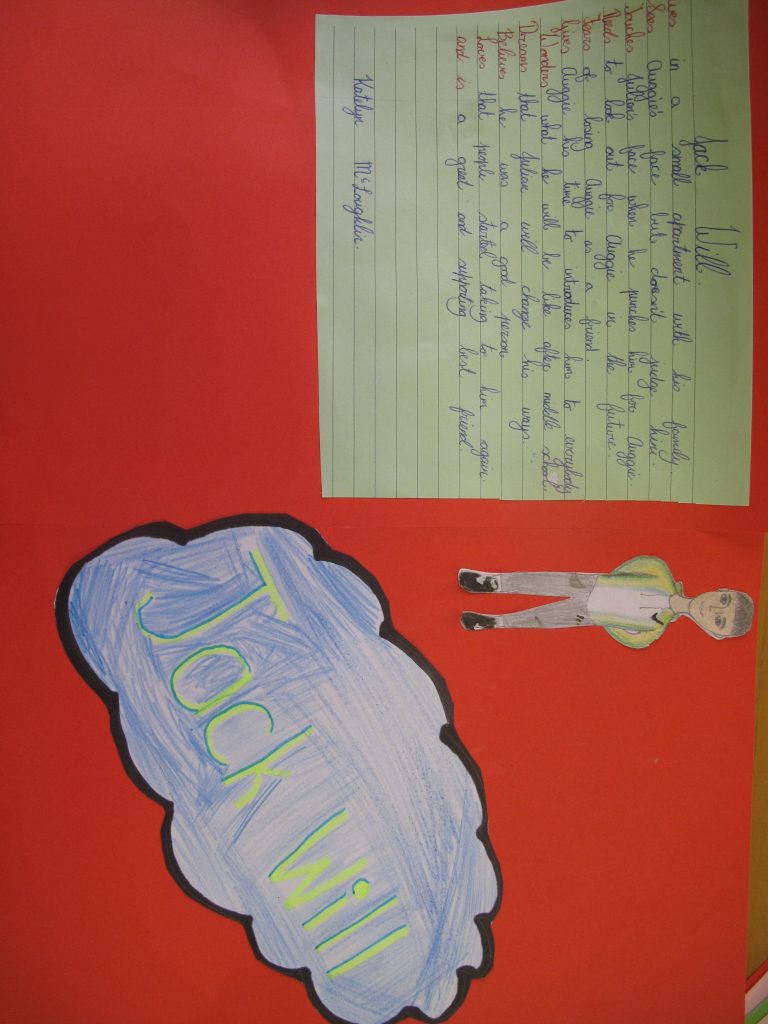 Jack Will.
Lives in a small apartment with his family.
Sees Auggie's face but doesn't judge him.
Touches Julian's face when he punches him for Auggie.
Needs to look out for Auggie in the future.
Fears of losing Auggie as a friend.
Gives Auggie his time to introduces him to everybody
Wonders what he will be like after middle school.
Dreams that Julian will change his ways.
Believes he was a good person
Loves that people started taking to him again.
and is a great and supporting best friend.
Katelyn McLoughlin.
Jack Will